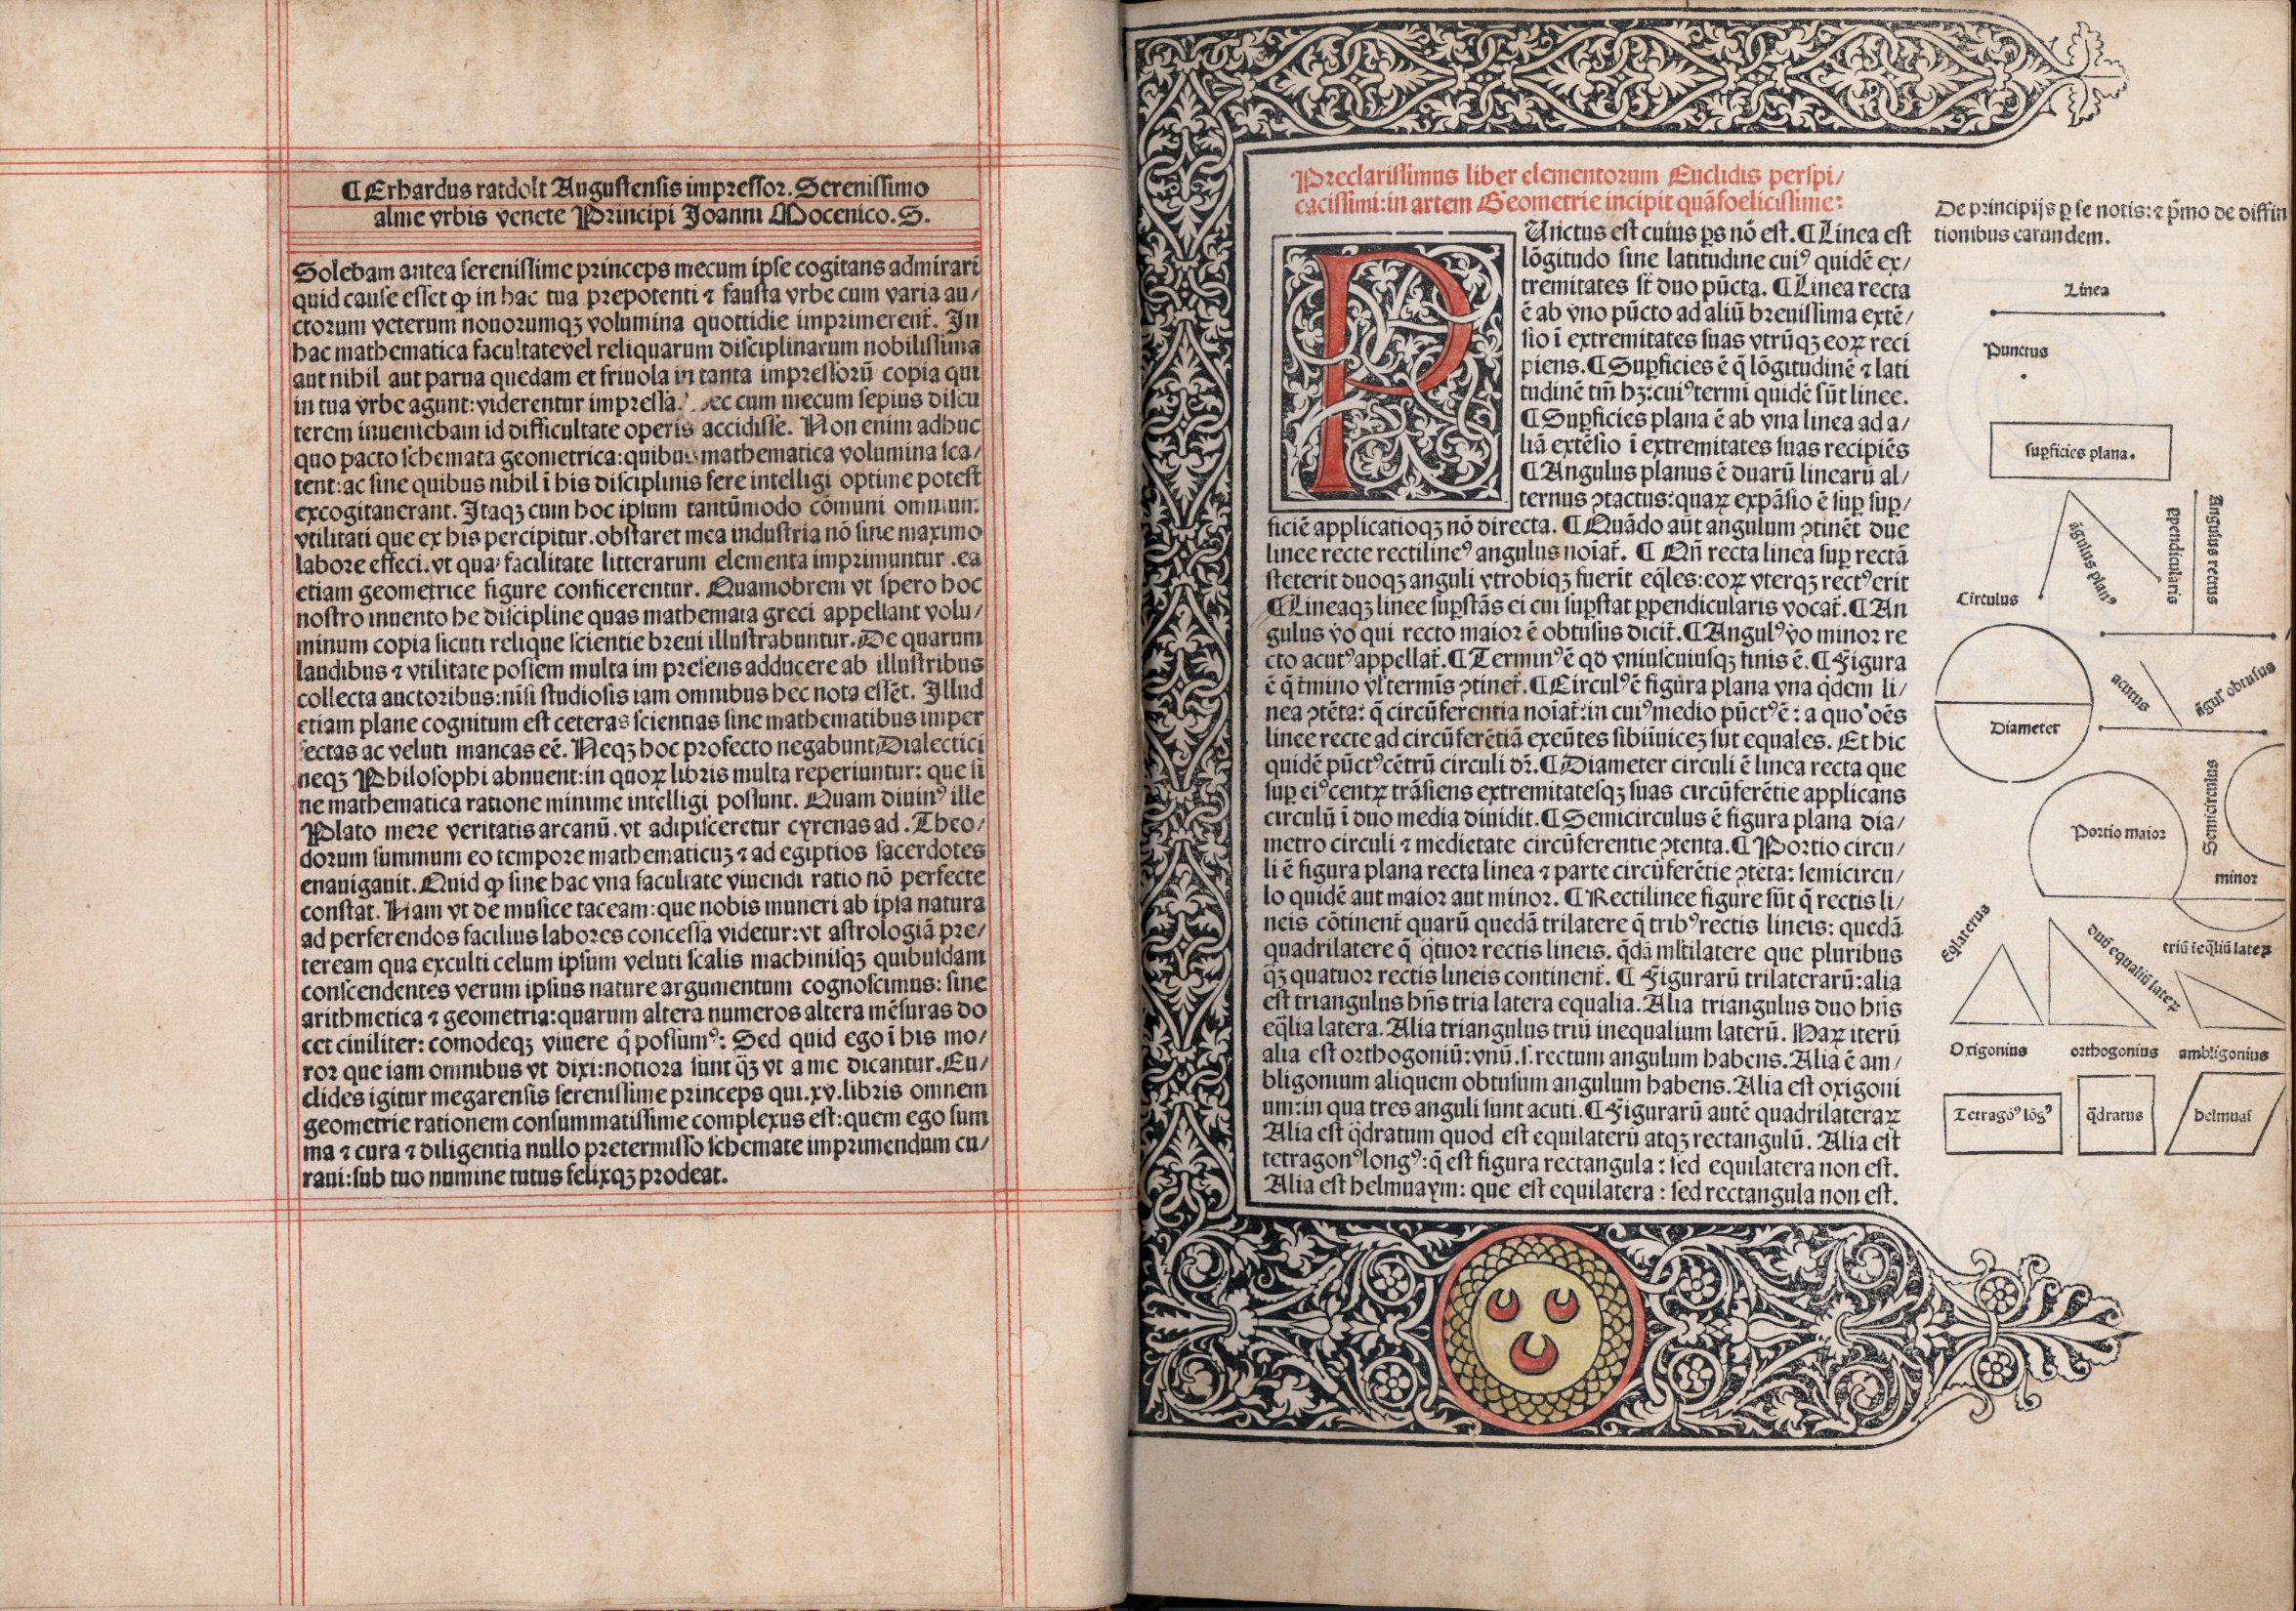 ¶Erhardus ratdolt Augustensis impressor. Serenissimo
alme vrbis venete Principi Joanni Mocenico. S.
Solebam antea serenissime princeps mecum ipse cogitans admirari
quid cause esset ꝙ in hac tua prepotenti ⁊ fausta vrbe cum varia au/
ctorum veterum nouorumqꝫ volumina quottidie imprimerent᷑. In
hac mathematica facultate vel reliquarum disciplinarum nobilissima
aut nihil aut parua quedam et friuola in tanta impressorū copia qui
in tua vrbe agunt: viderentur impressa. ec cum mecum sepius discu
terem inueniebam id difficultate operis accidisse. Non enim adhuc
quo pacto schemata geometrica: quibus mathematica volumina sca/
tent: ac sine quibus nihil ī his disciplinis fere intelligi optime potest
excogitauerant. Itaqꝫ cum hoc ipsum tantūmodo cōmuni omnium
vtilitati que ex his percipitur. obstaret mea industria nō sine maximo
labore effeci. vt qua facilitate litterarum elementa imprimuntur. ea
etiam geometrice figure conficerentur. Quamobrem vt spero hoc
nostro inuento he discipline quas mathemata greci appellant volu/
minum copia sicuti relique scientie breui illustrabuntur. De quarum
laudibus ⁊ vtilitate possem multa im presens adducere ab illustribus
collecta auctoribus: nisi studiosis iam omnibus hec nota essēt. Illud
etiam plane cognitum est ceteras scientias sine mathematibus imper
fectas ac veluti mancas eē. Neqꝫ hoc profecto negabunt Dialectici
neqꝫ Philosophi abnuent: in quoꝝ libris multa reperiuntur: que si
ne mathematica ratione minime intelligi possunt. Quam diuinꝰ ille
Plato mere veritatis arcanū. vt adipisceretur cyrenas ad. Theo/
dorum summum eo tempore mathematicuꝫ ⁊ ad egiptios sacerdotes
enauigauit. Quid ꝙ sine hac vna facultate viuendi ratio nō perfecte
constat. Nam vt de musice taceam: que nobis muneri ab ipsa natura
ad perferendos facilius labores concessa videtur: vt astrologiā pre/
teream qua exculti celum ipsum veluti scalis machinisqꝫ quibusdam
conscendentes verum ipsius nature argumentum cognoscimus: sine
arithmetica ⁊ geometria: quarum altera numeros altera mēsuras do
cet ciuiliter: comodeqꝫ viuere q̄ possumꝰ: Sed quid ego ī his mo/
ror que iam omnibus vt dixi: notiora sunt q̄ꝫ vt a me dicantur. Eu/
clides igitur megarensis serenissime princeps qui. xv. libris omnem
geometrie rationem consummatissime complexus est: quem ego sum
ma ⁊ cura ⁊ diligentia nullo pretermisso schemate imprimendum cu/
raui: sub tuo numine tutus felixqꝫ prodeat.
Preclarissimus liber elementorum Euclidis perspi/
cacissimi: in artem Geometrie incipit quāfoelicissime:
PUnctus est cuius ꝑs nō est. ¶Linea est
lōgitudo sine latitudine cuiꝰ quidē ex/
tremitates sť duo pūcta. ¶Linea recta
ē ab vno pūcto ad aliū breuissima extē/
sio ī extremitates suas vtrūqꝫ eoꝝ reci
piens. ¶Suꝑficies ē q̄ lōgitudinē ⁊ lati
tudinē tm̄ hꝫ: cuiꝰ termi quidē sūt linee.
¶Suꝑficies plana ē ab vna linea ad a/
liā extēsio ī extremitates suas recipiēs
¶Angulus planus ē duarū linearū al/
ternus ꝯtactus: quaꝝ expāsio ē suꝑ suꝑ/
ficiē applicatioqꝫ nō directa. ¶Quādo aūt angulum ꝯtinēt due
linee recte rectilineꝰ angulus noiat᷑. ¶Qn̄ recta linea suꝑ rectā
steterit duoqꝫ anguli vtrobiqꝫ fuerīt eq̄les: eoꝝ vterqꝫ rectꝰ erit
¶Lineaqꝫ linee suꝑstās ei cui suꝑstat ꝑpendicularis vocat᷑. ¶An
gulus v̊o qui recto maior ē obtusus dicit᷑. ¶Angulꝰ v̊o minor re
cto acutꝰ appellat᷑. ¶Terminꝰ ē qd̄ vniuscuiusqꝫ finis ē. ¶Figura
ē q̄ t̄mino vl̓ terminis ꝯtinet᷑. ¶Circulꝰ ē figura plana vna q̄dem li/
nea ꝯtēta: q̄ circūferentia noiat᷑: in cuiꝰ medio pūctꝰ ē: a quo oēs
linee recte ad circūferētiā exeūtes sibiinuiceꝫ sūt equales. Et hic
quidē pūctꝰ cētrū circuli dr̄. ¶Diameter circuli ē linea recta que
suꝑ eiꝰ centꝝ trāsiens extremitatesqꝫ suas circūferētie applicans
circulū ī duo media diuidit. ¶Semicirculus ē figura plana dia/
metro circuli ⁊ medietate circūferentie ꝯtenta. ¶Portio circu/
li ē figura plana recta linea ⁊ parte circūferētie ꝯtēta: semicircu/
lo quidē aut maior aut minor. ¶Rectilinee figure sūt q̄ rectis li/
neis cōtinent᷑ quarū quedā trilatere q̄ tribꝰ rectis lineis: quedā
quadrilatere q̄ q̄tuor rectis lineis. q̄dā ml̓tilatere que pluribus
q̄ꝫ quatuor rectis lineis continent᷑. ¶Figurarū trilaterarū: alia
est triangulus hn̄s tria latera equalia. Alia triangulus duo hn̄s
eq̄lia latera. Alia triangulus triū inequalium laterū. Haꝝ iterū
alia est orthogoniū: vnū. s. rectum angulum habens. Alia ē am/
bligonium aliquem obtusum angulum habens. Alia est oxigoni
um: in qua tres anguli sunt acuti. ¶Figurarū autē quadrilateraꝝ
Alia est q̄dratum quod est equilaterū atqꝫ rectangulū. Alia est
tetragonꝰ longꝰ: q̄ est figura rectangula: sed equilatera non est.
Alia est helmuaym: que est equilatera: sed rectangula non est.
De principijs ꝑ se notis: ⁊ p̄mo de diffin
tionibus earundem.
Linea
Punctus
suꝑficies plana.
āgulus planꝰ
ꝑpendicularis
Angulus rectus
Circulus
Diameter
acutus
āgulꝰ obtusus
Portio maior
Semicirculus
minor
Eq̄laterus
duū equaliū lateꝝ
triū īeq̄liū lateꝝ
Oxigonius
orthogonius
ambligonius
Tetragōꝰ lōgꝰ
q̄dratus
helmuai